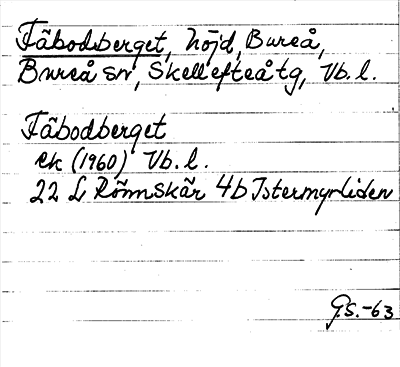 Fäbodsberget, höjd, Bureå,
Bureå sn, Skellefteå tg, Vb. l.
Fäbodberget
ek (1960) Vb. l.
22 L Rönnskär 4b Istermyrliden
G.S.-63